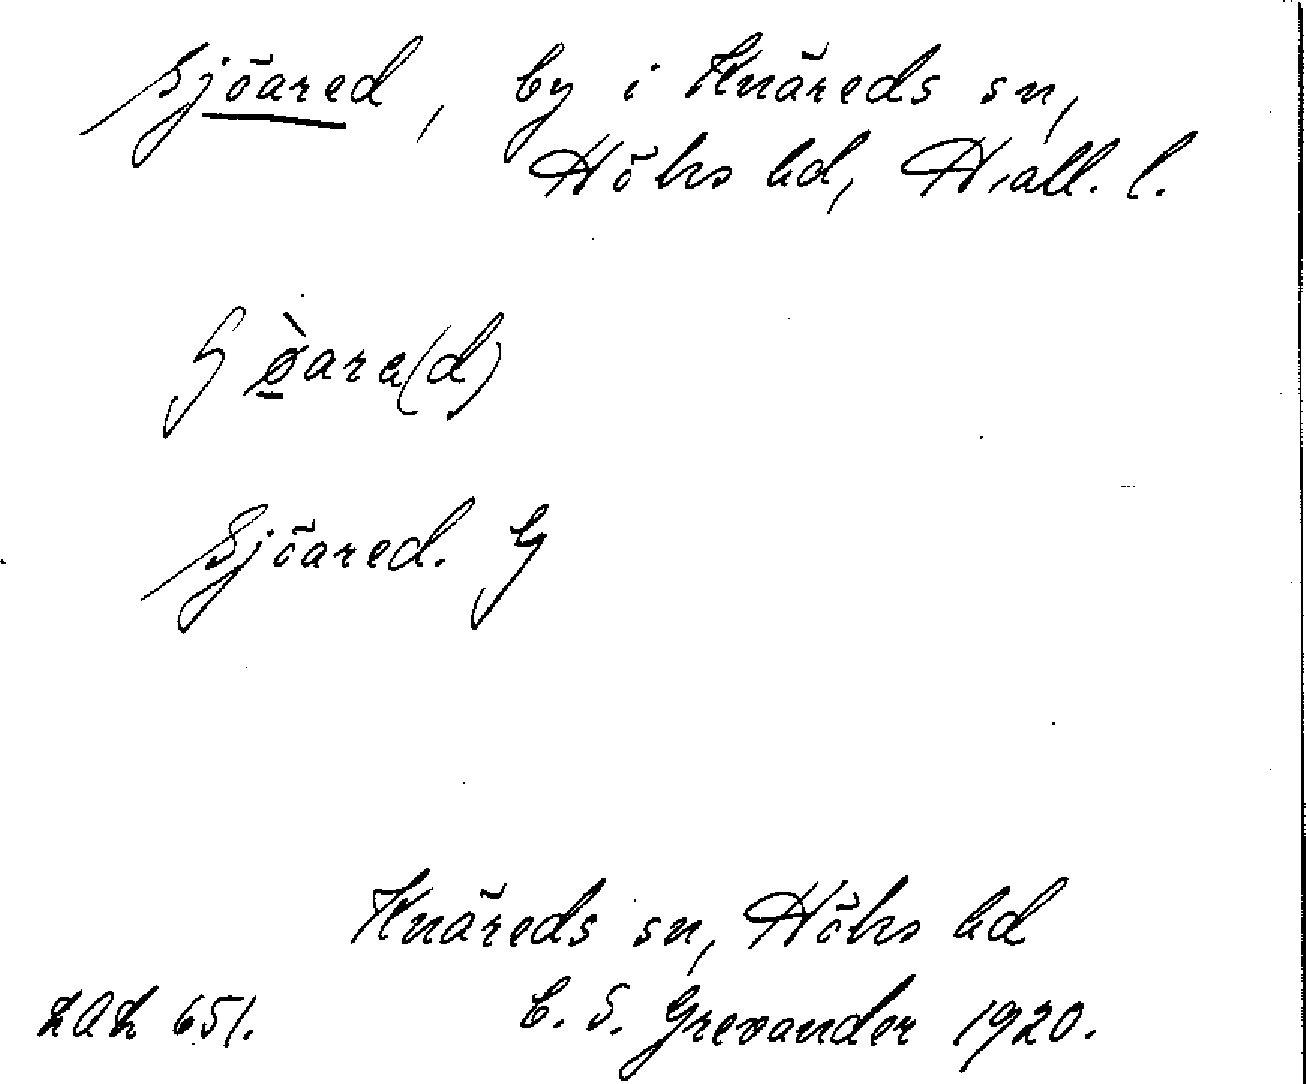 Sjöared, by i Knäreds sn,
Höks hd, Hall. l.
Sjöared. G
Knäreds sn, Höks hd
LAL 651. C. S. Grevander 1920.